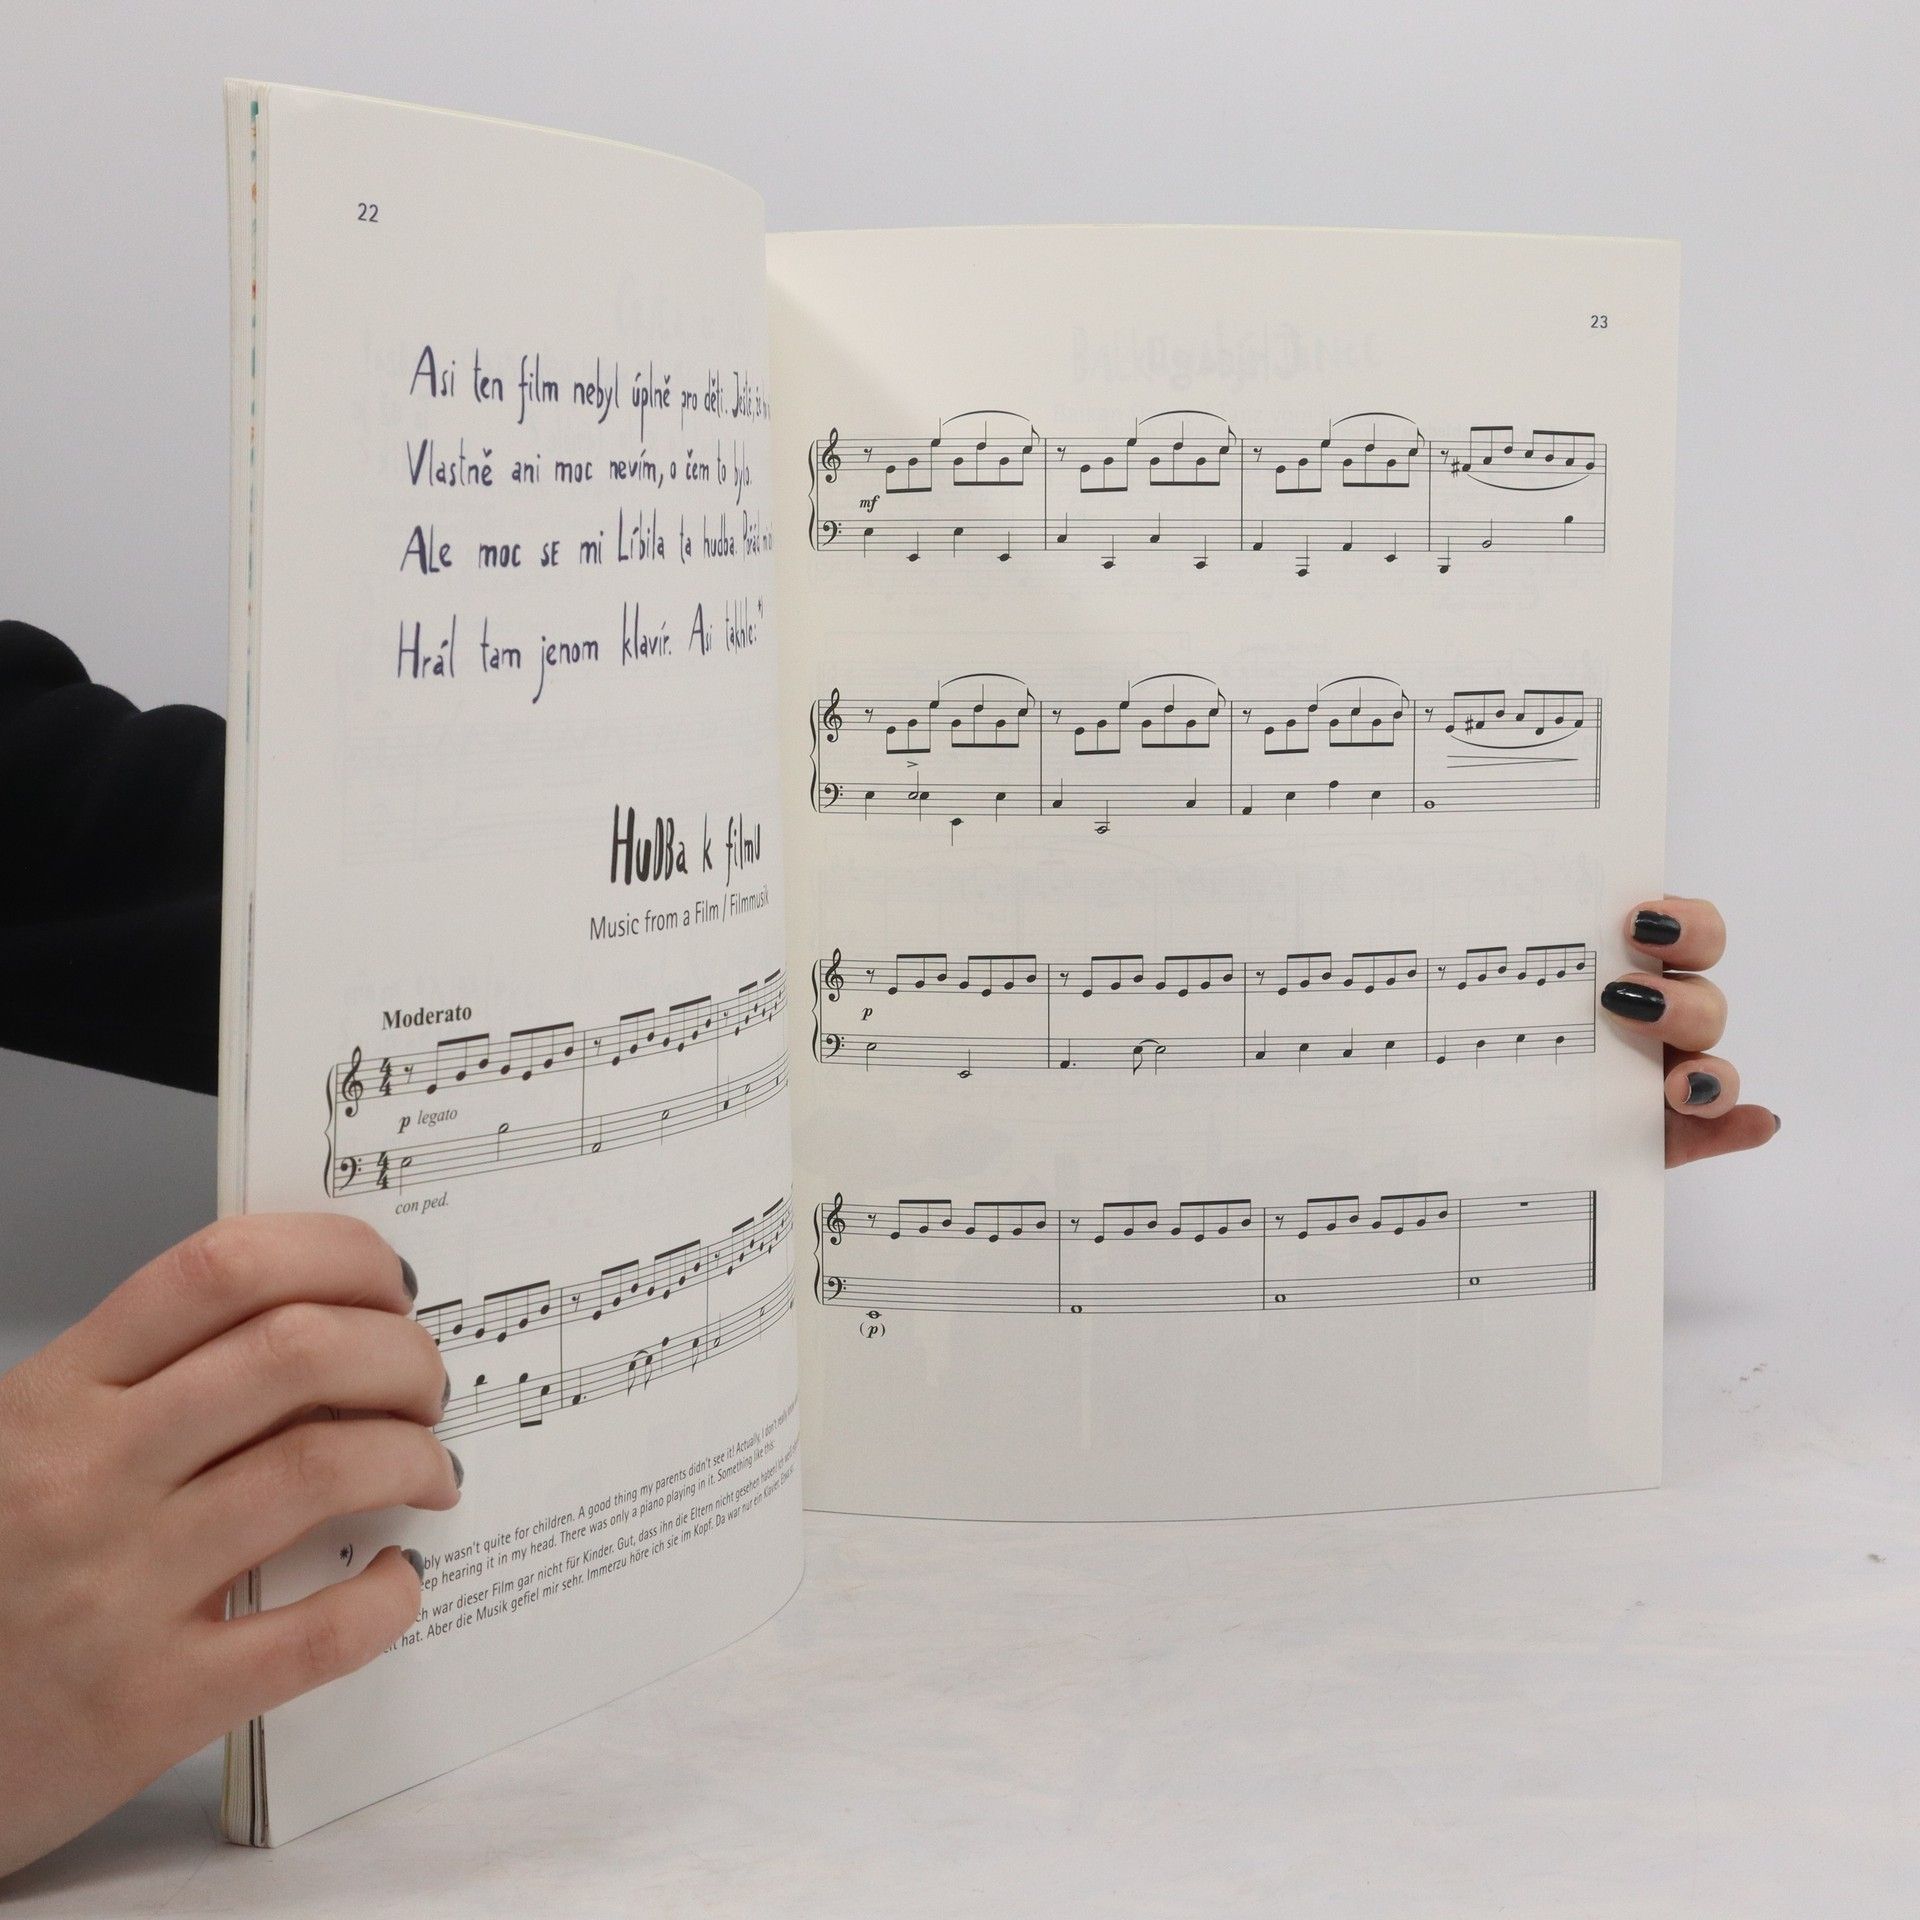 22
Asi ten film nebyl úplně pro děti. Ještě, že
Vlastně ani moc nevím, o čem to bylo.
Ale moc se mi líbila ta hudba. Pořád
Hrál tam jenom klavír. Asi takhle:*)
Hudba k filmu
Music from a Film / Filmmusik
Moderato
p legato
con ped.
*)
wasn't quite for children. A good thing my parents didn't see it! Actually, I don't really know
hearing it in my head. There was only a piano playing in it. Something like this:
war dieser Film gar nicht für Kinder. Gut, dass ihn die Eltern nicht gesehen haben! Ich weiß
hat. Aber die Musik gefiel mir sehr. Immerzu höre ich sie im Kopf. Da war nur ein Klavier. Etwa so:
23
mf
p
(p)